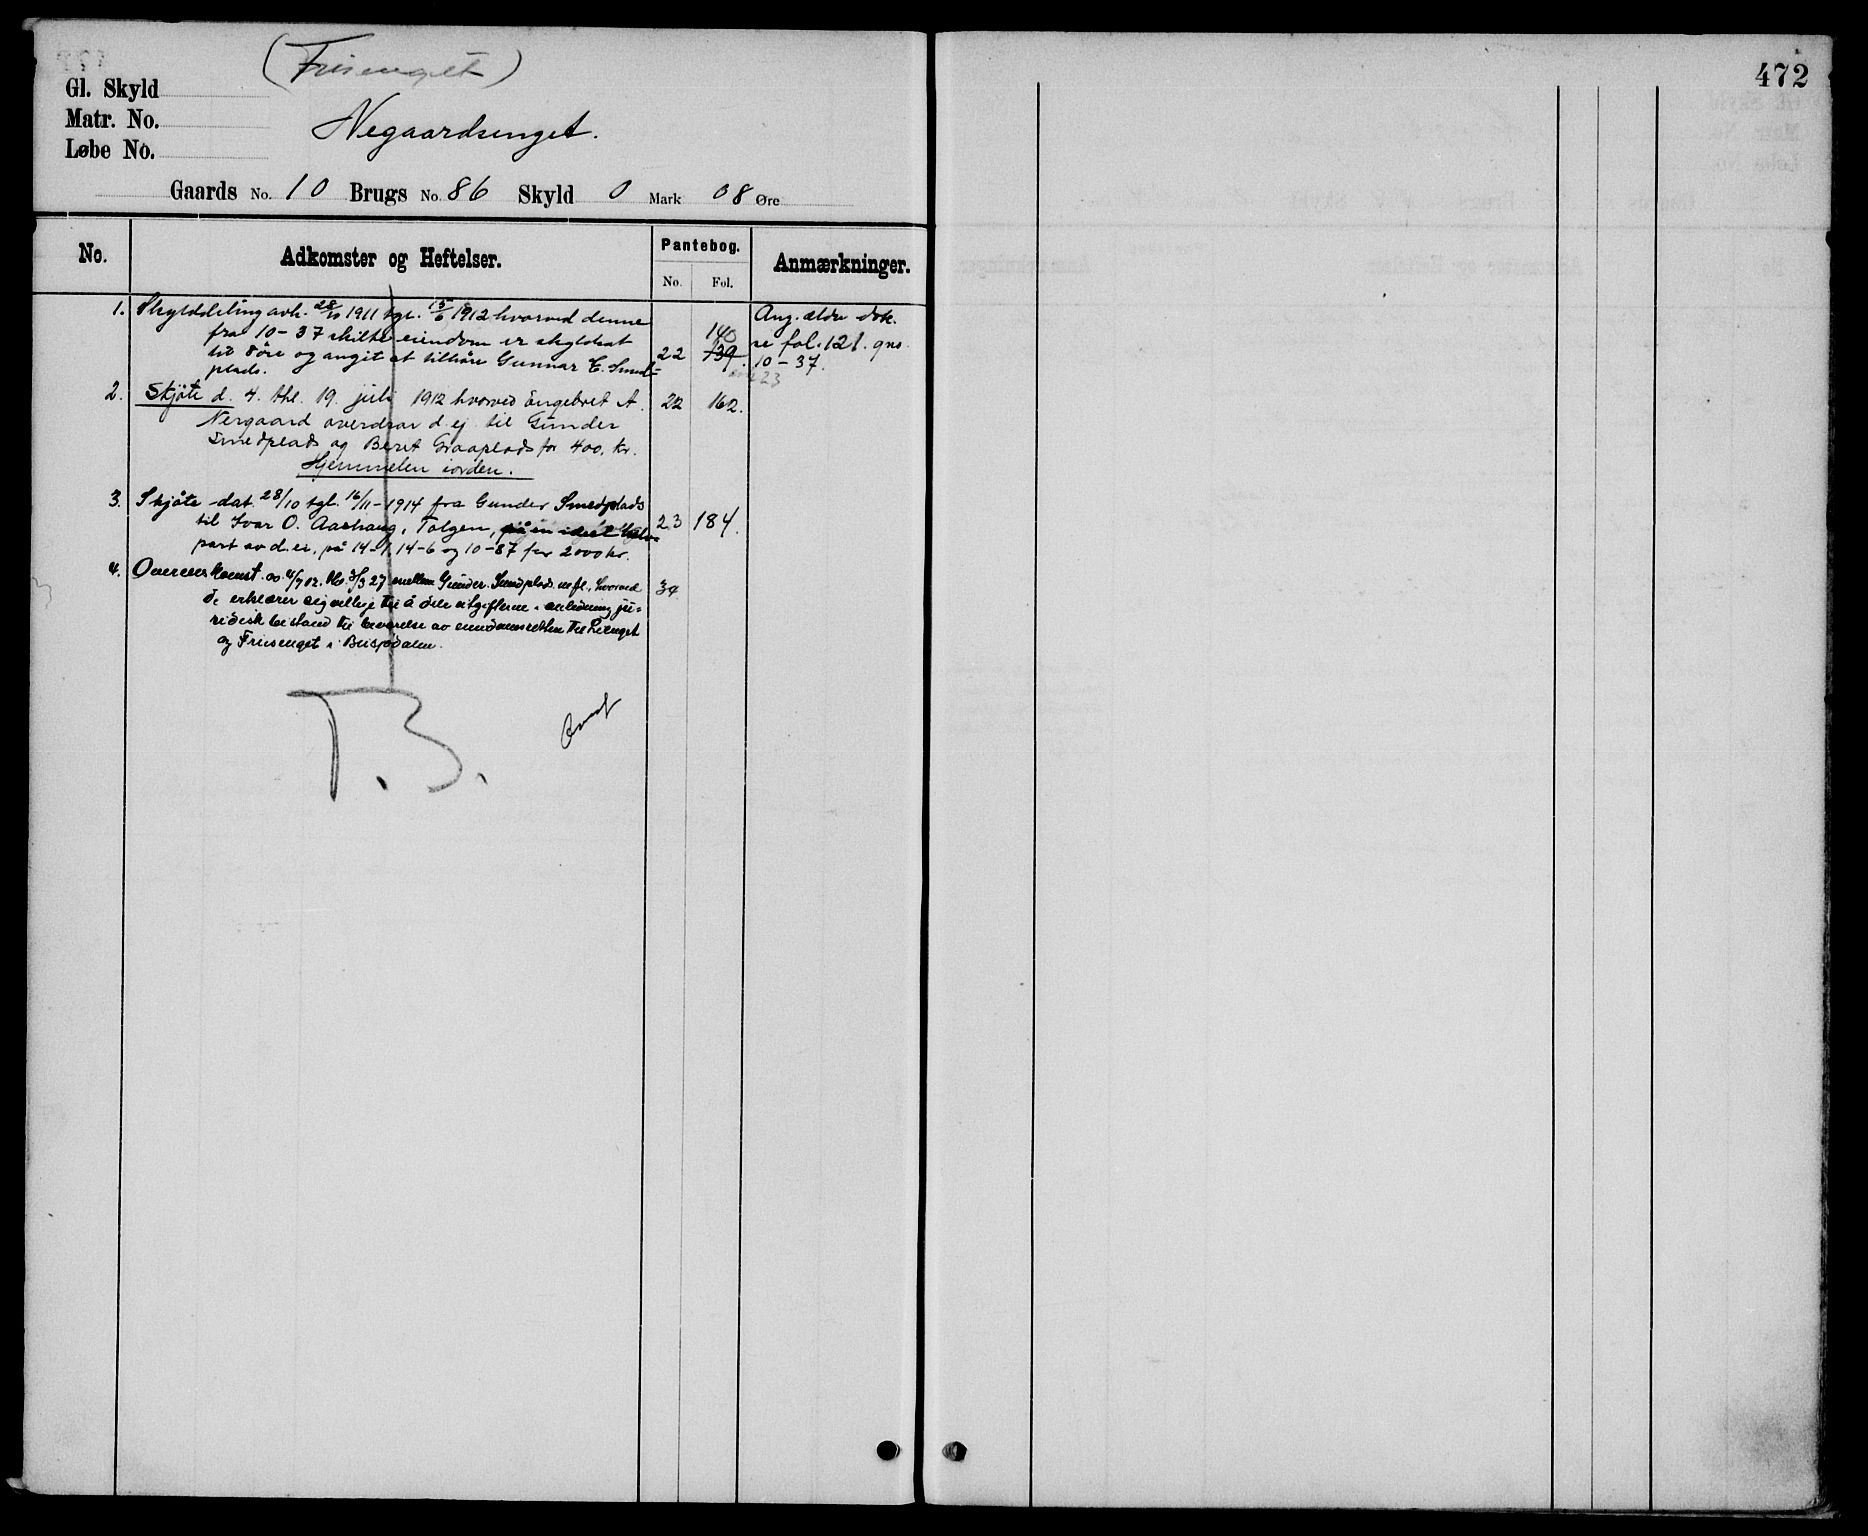 472
(Friisenget)
Gl. Skyld
Matr. No.
Negaardsenget.
Løbe No.
Gaards No. 10 Brugs No. 86 Skyld 0 Mark 08 Øre
No. Adkomster og Heftelser. Pantebog. Anmærkninger.
No. Fol.
1. Skylddeling avh. 28/10 1911 tgl. 15/6 1912 hvorved denne
fra 10-37 skilte eiendom er skyldsat
til 8 øre og angit at tilhøre Gunnar E. Smed-
plads.
22 139. 140
Ang. ældre dok.
se fol. 121. gns.
10-37.
2. Skjøte d. 4. thl. 19. juli 1912 hvorved Engebret A.
Nergaard overdrar d. ej. til Gunder
Smedplads og Beret Graaplads for 400, kr.
Hjemmelen iorden.
22 162.
3. Skjøte dat. 28/10 tgl. 16/11-1914 fra Gunder Smedplads
til Ivar O. Aashaug, Tolgen, på en ideel halv-
part av d. ei., på 14-1, 14-6 og 10-87 for 2000 kr.
23 184.
4. Overenskomst 4/7 02. tgl. 3/3 27 mellem Gunder Smedplads m. fl., hvorved
de erklærer sig villige til å dele utgifterne i anledning ju-
ridisk bistand til bevarelse av eiendomsretten til Lienget
og Friisenget i Busjødalen.
34
T.B.